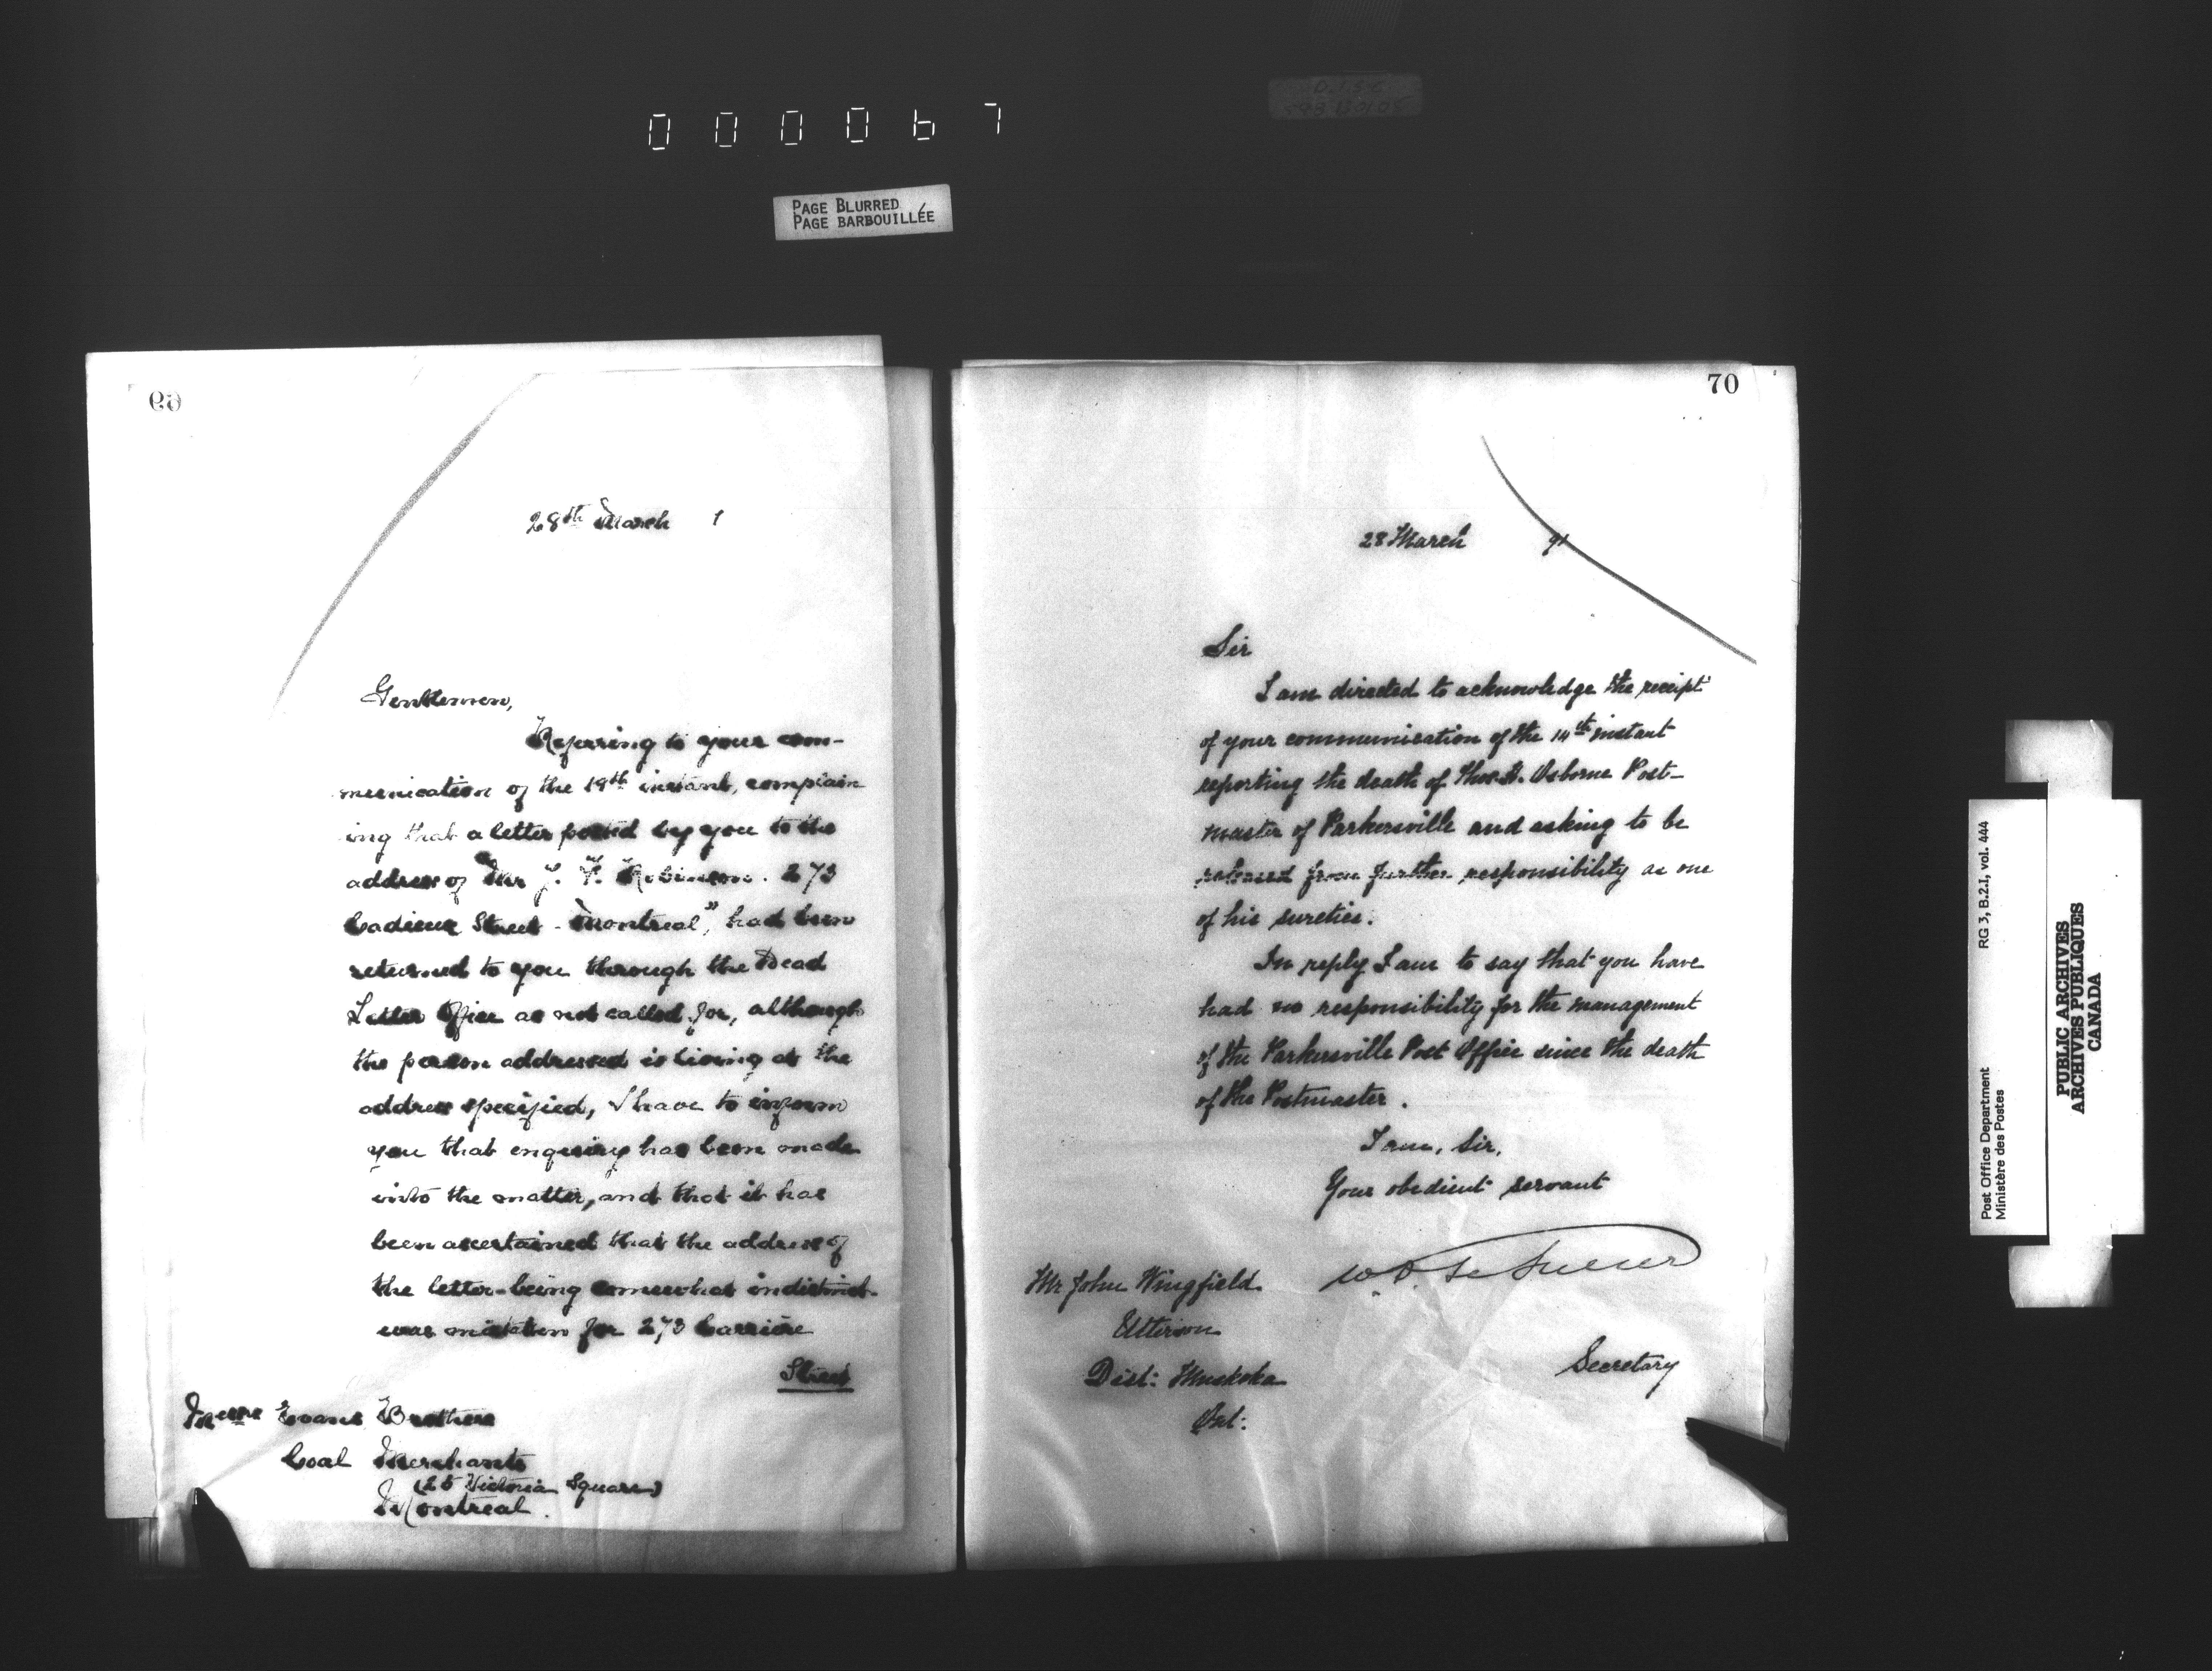 000067
PAGE BLURRED
PAGE BARBOUILLÉE
69
28th March 1
Gentlemen,
Referring to your com-
munication of the 19th instant, complain
ing that a letter posted by you to the
address of "Mr J. F. Robinson. 273
Cadieux Street - Montreal", had been
returned to you through the Dead
Letter Office as not called for, although
the person addressed is living at the
address specified, I have to inform
you that enquiry has been made
into the matter, and that it has
been ascertained that the address of
the letter being somewhat indistinct
was mistaken for 273 Carrière
Street
Messrs Evans Brothers
Coal Merchants
(25 Victoria Square)
Montreal.
70
28 March 91
Sir
I am directed to acknowledge the receipt
of your communication of the 14th instant
reporting the death of Thos. Osborne Post-
master of Parkersville and asking to be
released from further responsibility as one
of his sureties.
In reply I am to say that you have
had no responsibility for the management
of the Parkersville Post Office since the death
of the Postmaster.
I am, Sir,
Your obedient servant
Secretary
Mr John Wingfield
Utterson
Dist: Muskoka
Ont:
Post Office Department RG 3, B.2.I, vol. 444
Ministère des Postes
PUBLIC ARCHIVES
ARCHIVES PUBLIQUES
CANADA